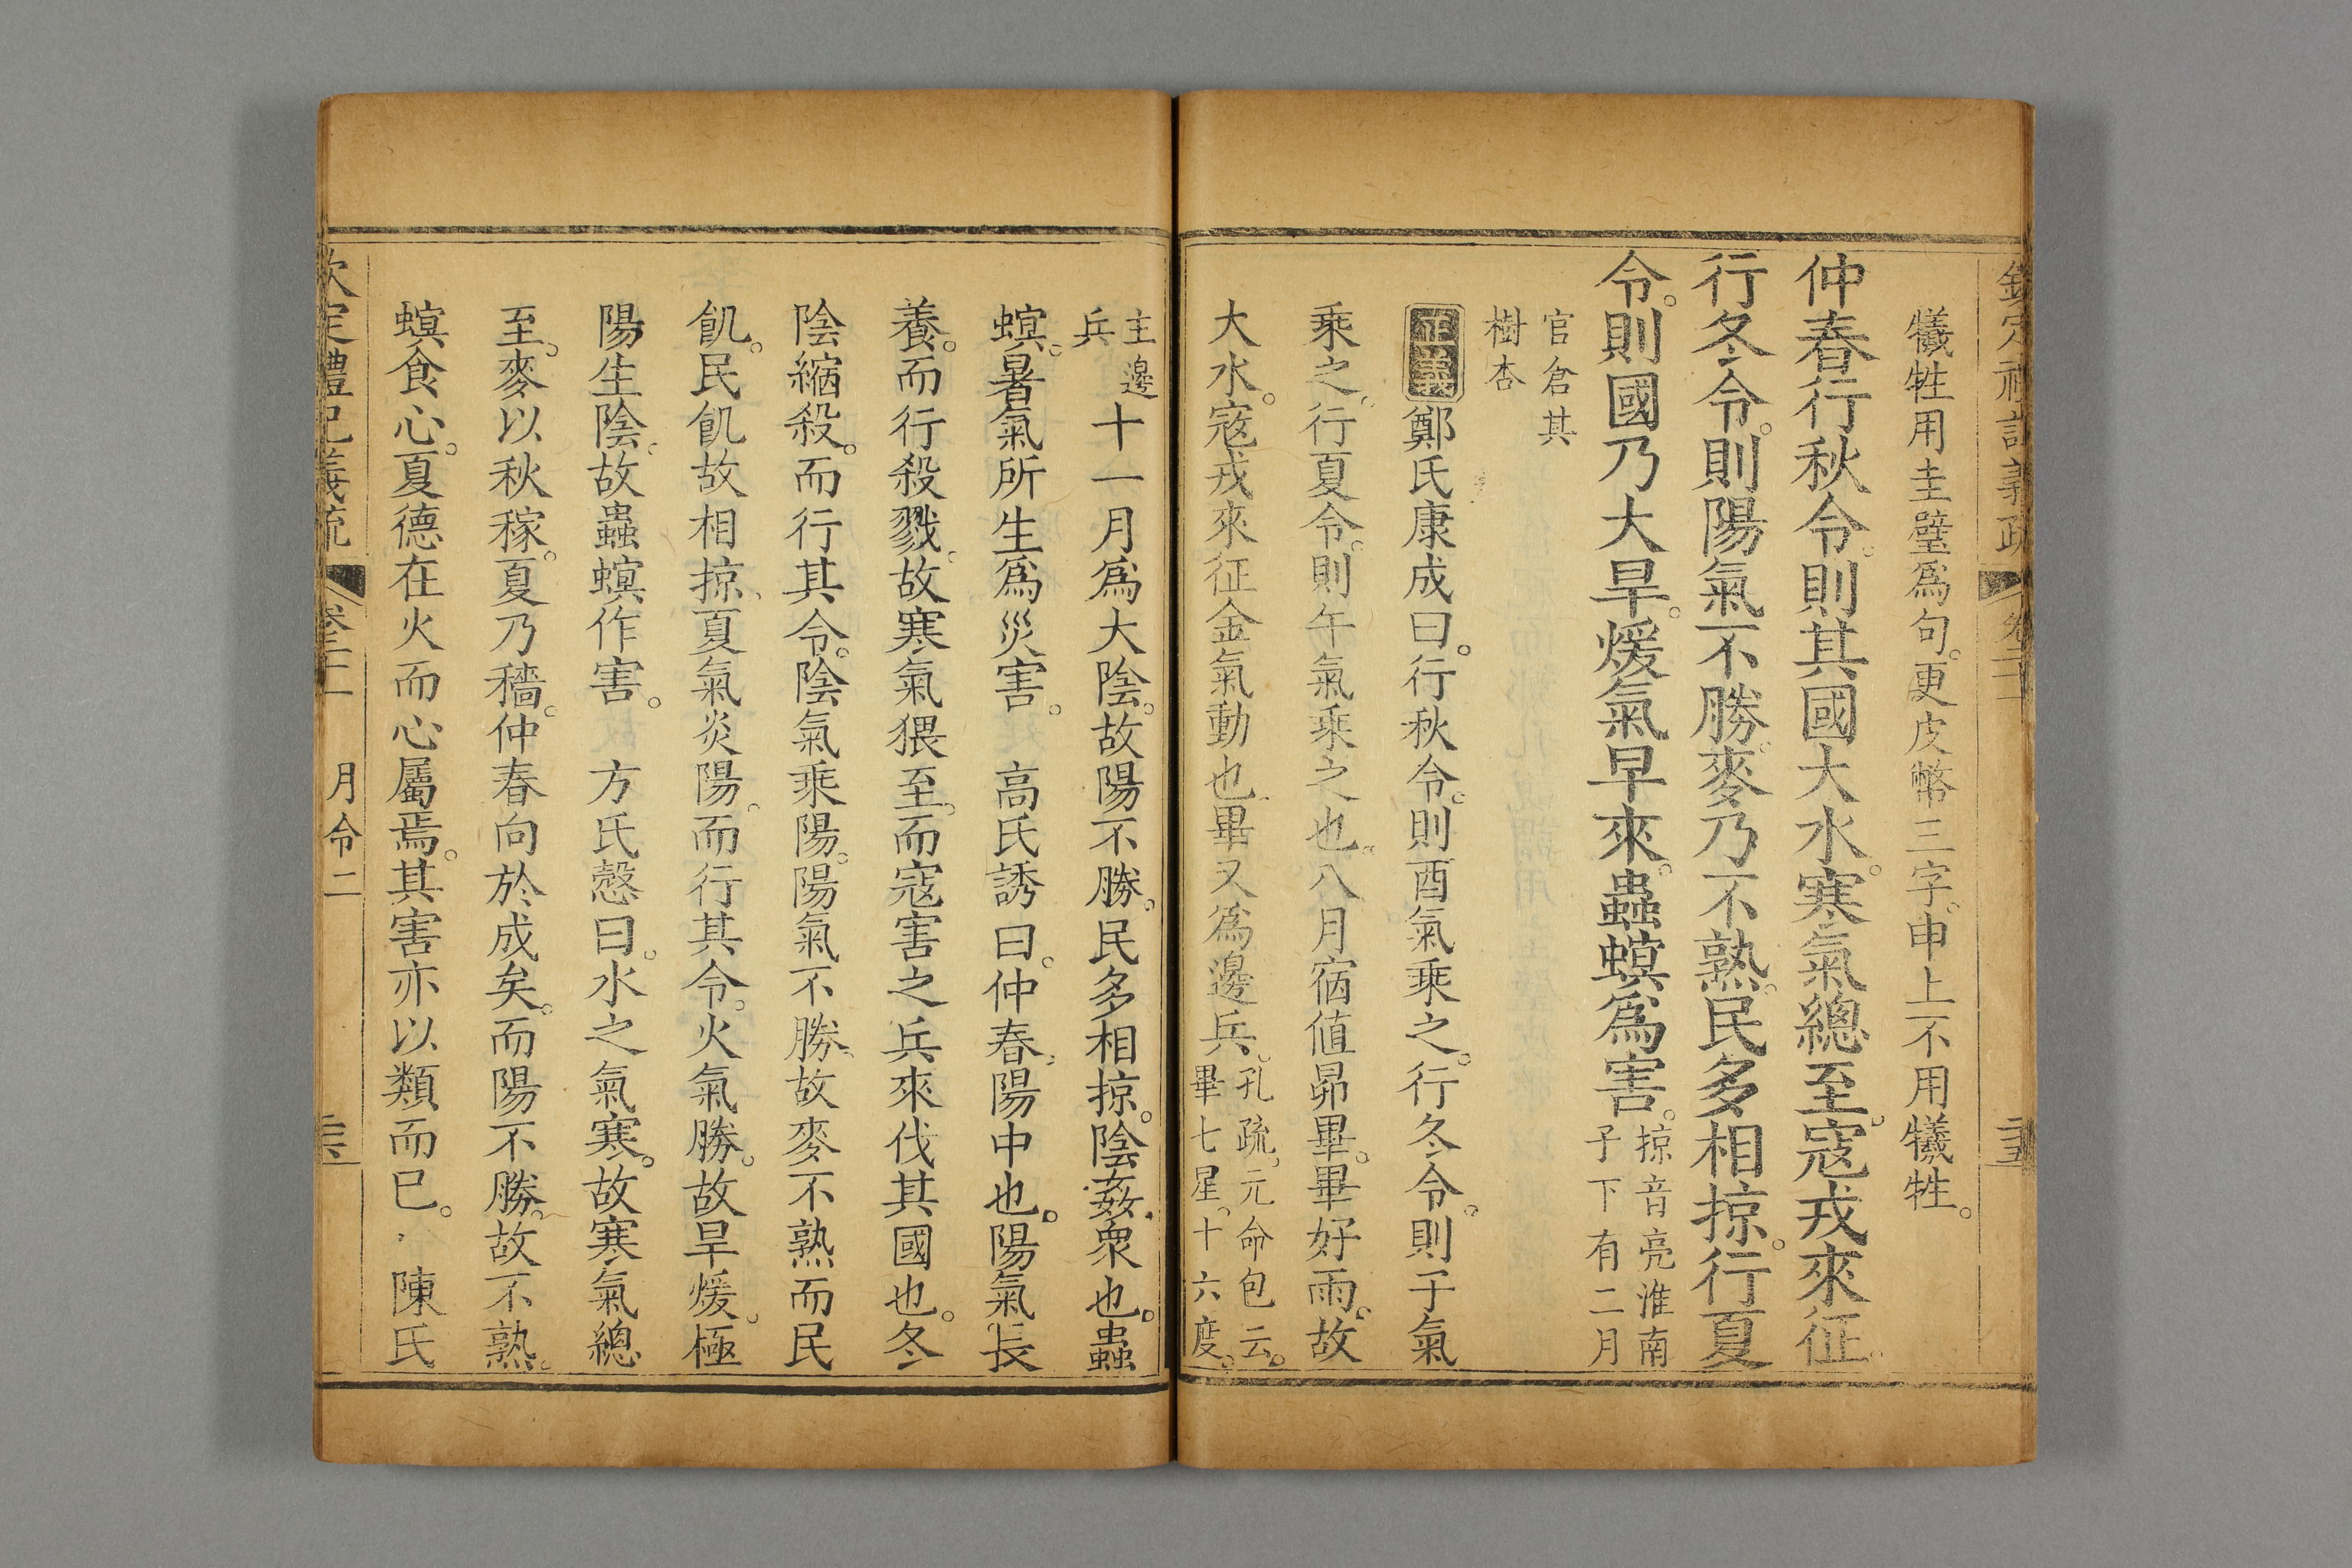 欽定禮記義疏 卷二十一 三十五
犧牲用圭璧爲句。更皮幣三字。申上不用犧牲。
仲春行秋令。則其國大水。寒氣總至。寇戎來征。
行冬令。則陽氣不勝。麥乃不熟。民多相掠。行夏
令。則國乃大旱。煖氣早來。蟲螟爲害。
掠音亮淮南
子下有二月
官倉其
樹杏
正義 鄭氏康成曰。行秋令。則酉氣乘之。行冬令。則子氣
乘之。行夏令。則午氣乘之也。八月宿値昴畢。畢好雨。故
大水。寇戎來征金氣動也。畢又爲邊兵。
孔疏。元命包云。
畢七星。十六度。
主邊
兵
十一月爲大陰。故陽不勝。民多相掠。陰姦衆也。蟲
螟。暑氣所生爲災害。 高氏誘曰。仲春。陽中也。陽氣長
養。而行殺戮。故寒氣猥至。而寇害之兵來伐其國也。冬
陰縮殺。而行其令。陰氣乘陽。陽氣不勝。故麥不熟而民
飢。民飢故相掠。夏氣炎陽。而行其令。火氣勝。故旱煖。極
陽生陰。故蟲螟作害。 方氏慤曰。水之氣寒。故寒氣總
至。麥以秋稼。夏乃穡。仲春向於成矣。而陽不勝。故不熟。
螟食心。夏德在火而心屬焉。其害亦以類而已。 陳氏
欽定禮記義疏 卷二十一 月令二